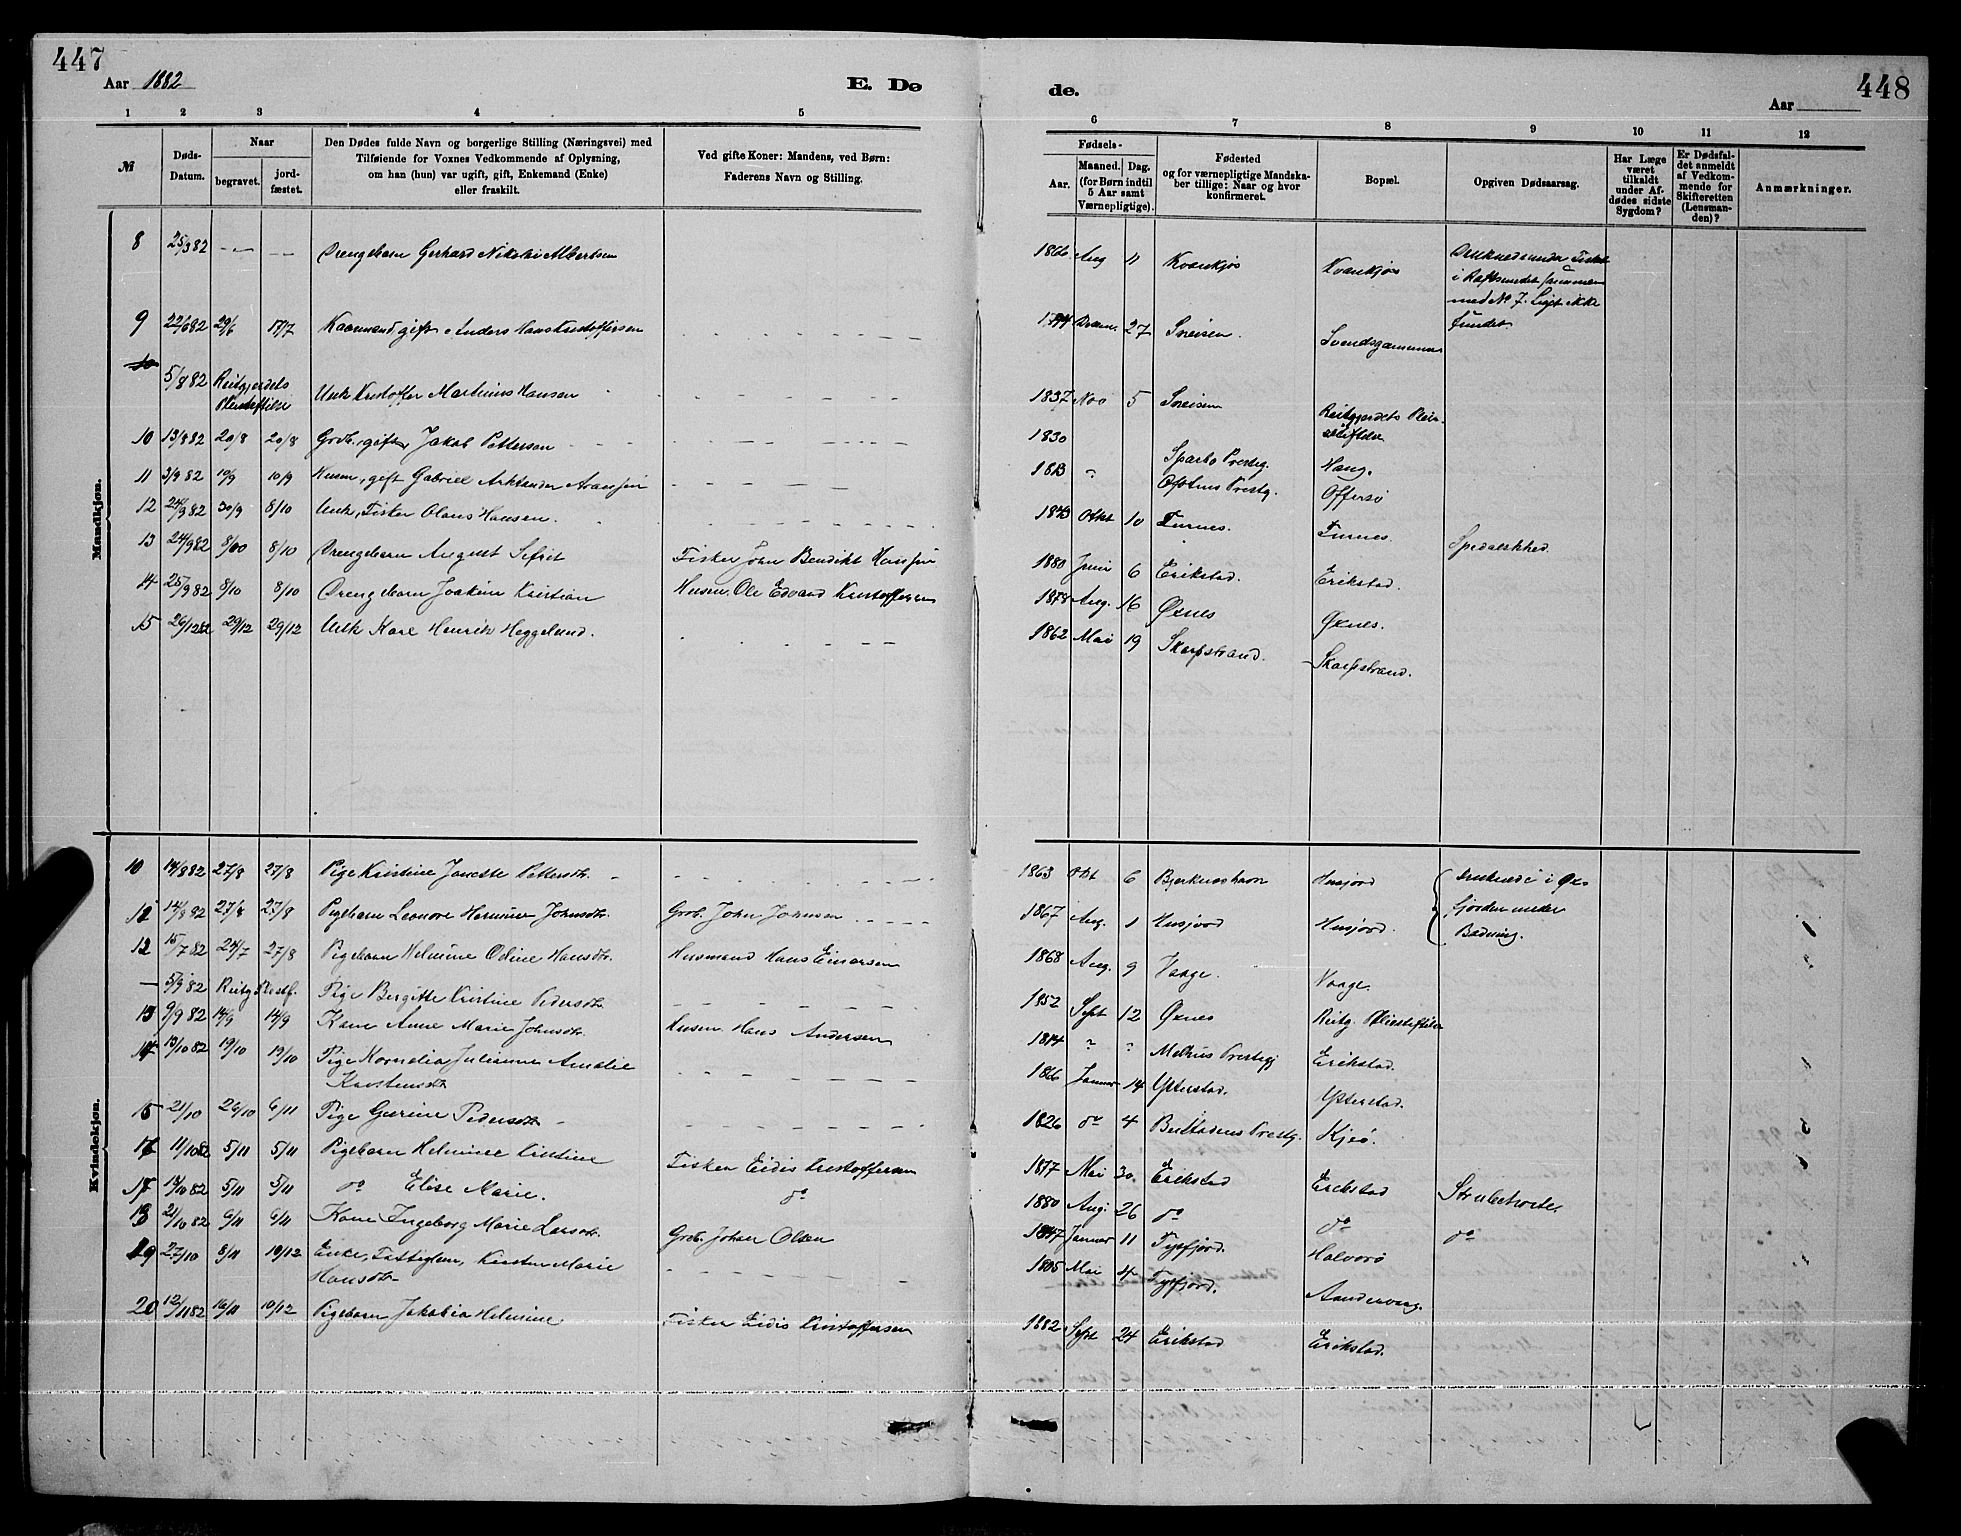 447
Aar 1882
E. Dø
de.
Aar
448
1 2 3 4 5
6 7 8 9 10 11 12
№
Døds-
Datum.
Naar
begravet.
jord-
fæstet.
Den Dødes fulde Navn og borgerlige Stilling (Næringsvei) med
Tilføiende for Voxnes Vedkommende af Oplysning,
om han (hun) var ugift, gift, Enkemand (Enke)
eller fraskilt.
Ved gifte Koner: Mandens, ved Børn:
Faderens Navn og Stilling.
Fødsels-
Aar.
Maaned. Dag.
(for Børn indtil
5 Aar samt
Værnepligtige).
Fødested
og for værnepligtige Mandska-
ber tillige: Naar og hvor
konfirmeret.
Bopæl.
Opgiven Dødsaarsag.
Har Læge
været
tilkaldt
under Af-
dødes sidste
Sygdom?
Er Dødsfal-
det anmeldt
af Vedkom-
mende for
Skifteretten
(Lensman-
den)?
Anmærkninger.
Mandkjøn.
8 25/3 82 - - - - Drengebarn Gerhard Nikolai Albertsen 1866 Aug 11 Kvankjøs Kvankjøs Druknede under Fiskeri
i Raftsundet sammen
med № 7. Liget ikke
fundet
9 22/6 82 29/6 17/7 Kaarmand, gift, Anders Hans Kristoffersen Decem. 27 Sneisen. Svendsgammen
10
5/8 82 Reitgjerdets
Pleiestiftelse Unk Kristoffer Martinus Hansen 1837 Nov 5 Sneisen Reitgjerdets Pleie-
stiftelse
10 13/8 82 20/8 20/8 Grdb., gift, Jakob Pettersen 1830 Sparbo Prestg. Haug.
11 3/9 82 10/9 10/9 Husm, gift Gabriel Arntsen 1813 " Ofotens Prestg. Offersø
12 24/9 82 30/9 8/10 Unk, Fisker Olaus Hansen. 1843 Okt 10 Furnes. Furnes. Spedalskhed.
13 24/9 82 8/10 8/10 Drengebarn August Sefrit Fisker John Bendikt Hansen 1880 Juni 6 Erikstad. Erikstad.
14 25/9 82 8/10 8/10 Drengebarn Joakim Kristian Husm. Ole Edvard Kristoffersen 1878 Aug. 16 Øxnes Øxnes.
15 26/12 82 29/12 29/12 Unk Karl Henrik Heggelund. 1862 Mai 19 Skarpstrand. Skarpstrand.
Kvindekjøn.
10 14/8 82 27/8 27/8 Pige Kristine Janette Pettersdtr. 1863 Okt 6 Bjerknæshavn Husjord Druknede i Øx-
fjorden under
Badning.
11 14/8 82 27/8 27/8 Pigebarn Leonore Hermine Johnsdtr. Grdb. John Johnsen 1867 Aug. 1 Husjord Husjord.
12 15/7 82 24/7 27/8 Pigebarn Helmine Odine Hansdtr. Husmand Hans Einarsen 1868 Aug. 9 Vaage. Vaage.
— 5/9 82 Reitg Plestf. Pige Bergitte Kristine Pedersdtr. 1852 Sept 12 Øxnes Reitg. Pleiestiftelse
13 9/9 82 14/9 14/9 Kone Anne Marie Johnsdtr. Husm. Hans Andersen 1814 " " Melhus Prestegj Erikstad.
14 13/10 82 19/10 19/10 Pige Kornelia Julianne Amalie
Karstensdtr 1866 Januar 14 Ytterstad. Ytterstad.
15 21/10 26/10 6/11 Pige Gurine Pedersdtr 1826 do 4 Buksnes Prestg. Kjeø.
16 11/10 82 5/11 5/11 Pigebarn Helmine Kristine Fisker Eidis Kristoffersen 1877 Mai 30. Erikstad Erikstad Strubehoste.
17 14/10 82 5/11 5/11 do Elise Marie. do 1880 Aug. 26 do do do
18 21/10 82 6/11 6/11 Kone Ingeborg Marie Larsdtr. Grdb. Johan Olsen 1847 Januar 11 Tysfjord. Halvarø
19 27/10 8/11 10/12 Enke, Fattiglem, Kirsten Marie
Hansdtr 1805 Mai 4 Tysfjord. Aandervaag.
20 12/11 82 16/11 10/12 Pigebarn Jakobia Helmine Fisker Eidis Kristoffersen 1882 Sept 24 Erikstad Erikstad.